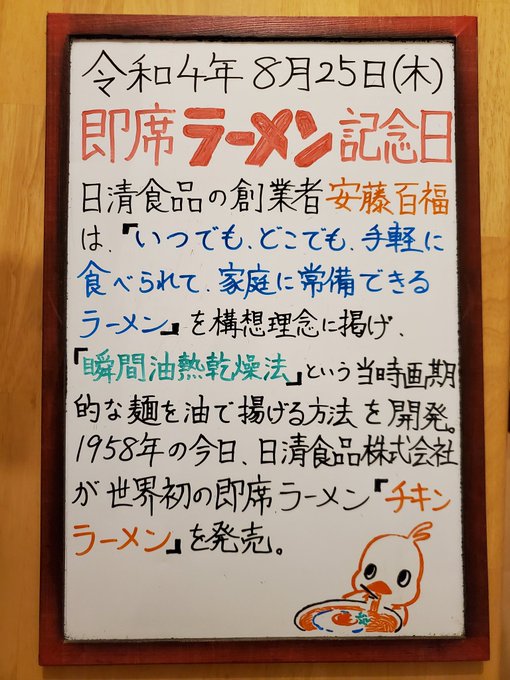 令和4年 8月25日(木)
即席ラーメン記念日
日清食品の創業者安藤百福
は、『いつでも、どこでも、手軽に
食べられて、家庭に常備できる
ラーメン』を構想理念に掲げ、
『瞬間油熱乾燥法』という当時画期
的な麺を油で揚げる方法を開発。
1958年の今日、日清食品株式会社
が世界初の即席ラーメン『チキン
ラーメン』を発売。